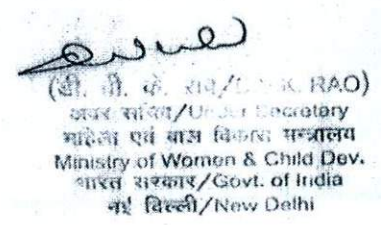 (बी. वी. के. राव/ RAO)
अवर सचिव/Under Secretary
महिला एवं बाल विकास मन्त्रालय
Ministry of Women & Child Dev.
भारत सरकार/Govt. of India
नई दिल्ली/New Delhi